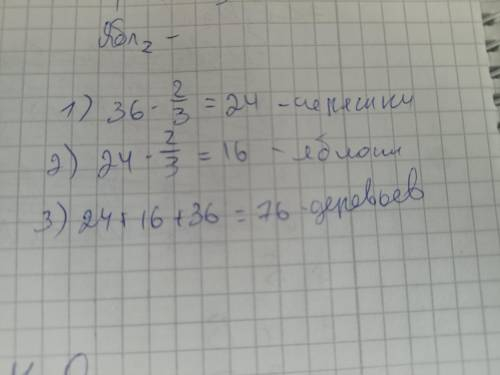 Ябл₂ -
1) 36 · 2/3 = 24 - черешки
2) 24 · 2/3 = 16 - яблони
3) 24 + 16 + 36 = 76 - деревьев